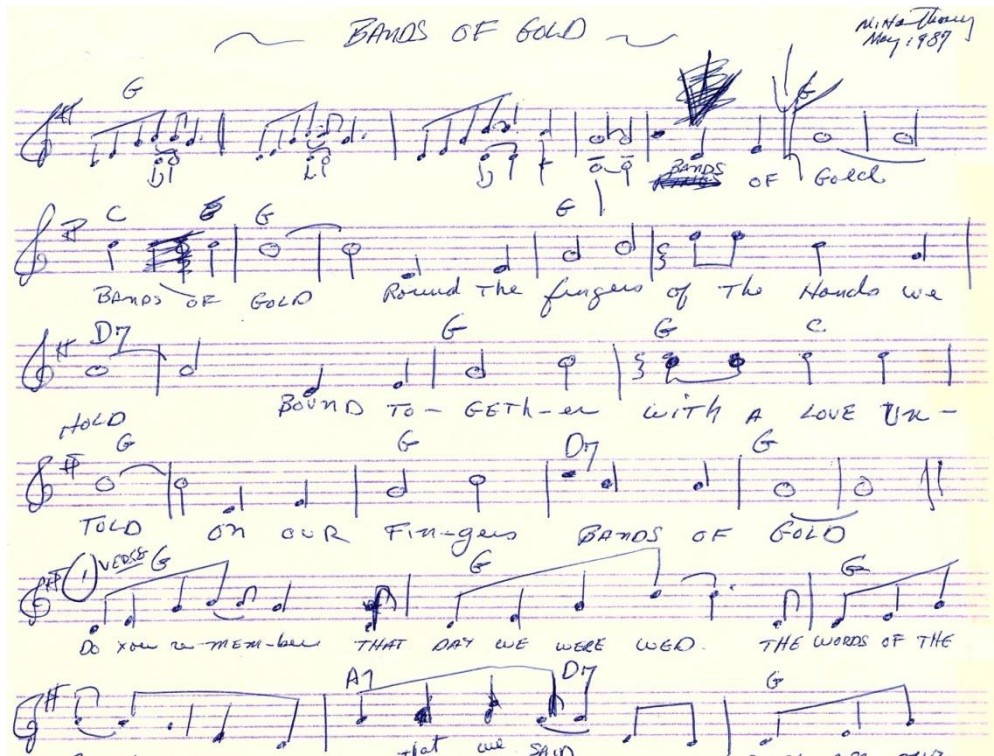 BANDS OF GOLD
May, 1987
G
G
BANDS OF Gold
C G G
BANDS OF GOLD Round The fingers of The Hands we
D7 G G C.
HOLD BOUND TO- GETh-er with A LOVE UN-
G G D7 G
TOLD ON OUR Fin-gers BANDS OF GOLD
1 VERSE G G G
Do You re-mem-ber THAT DAY WE WERE WED. THE WORDS OF THE
A7 D7 G
that we SAID